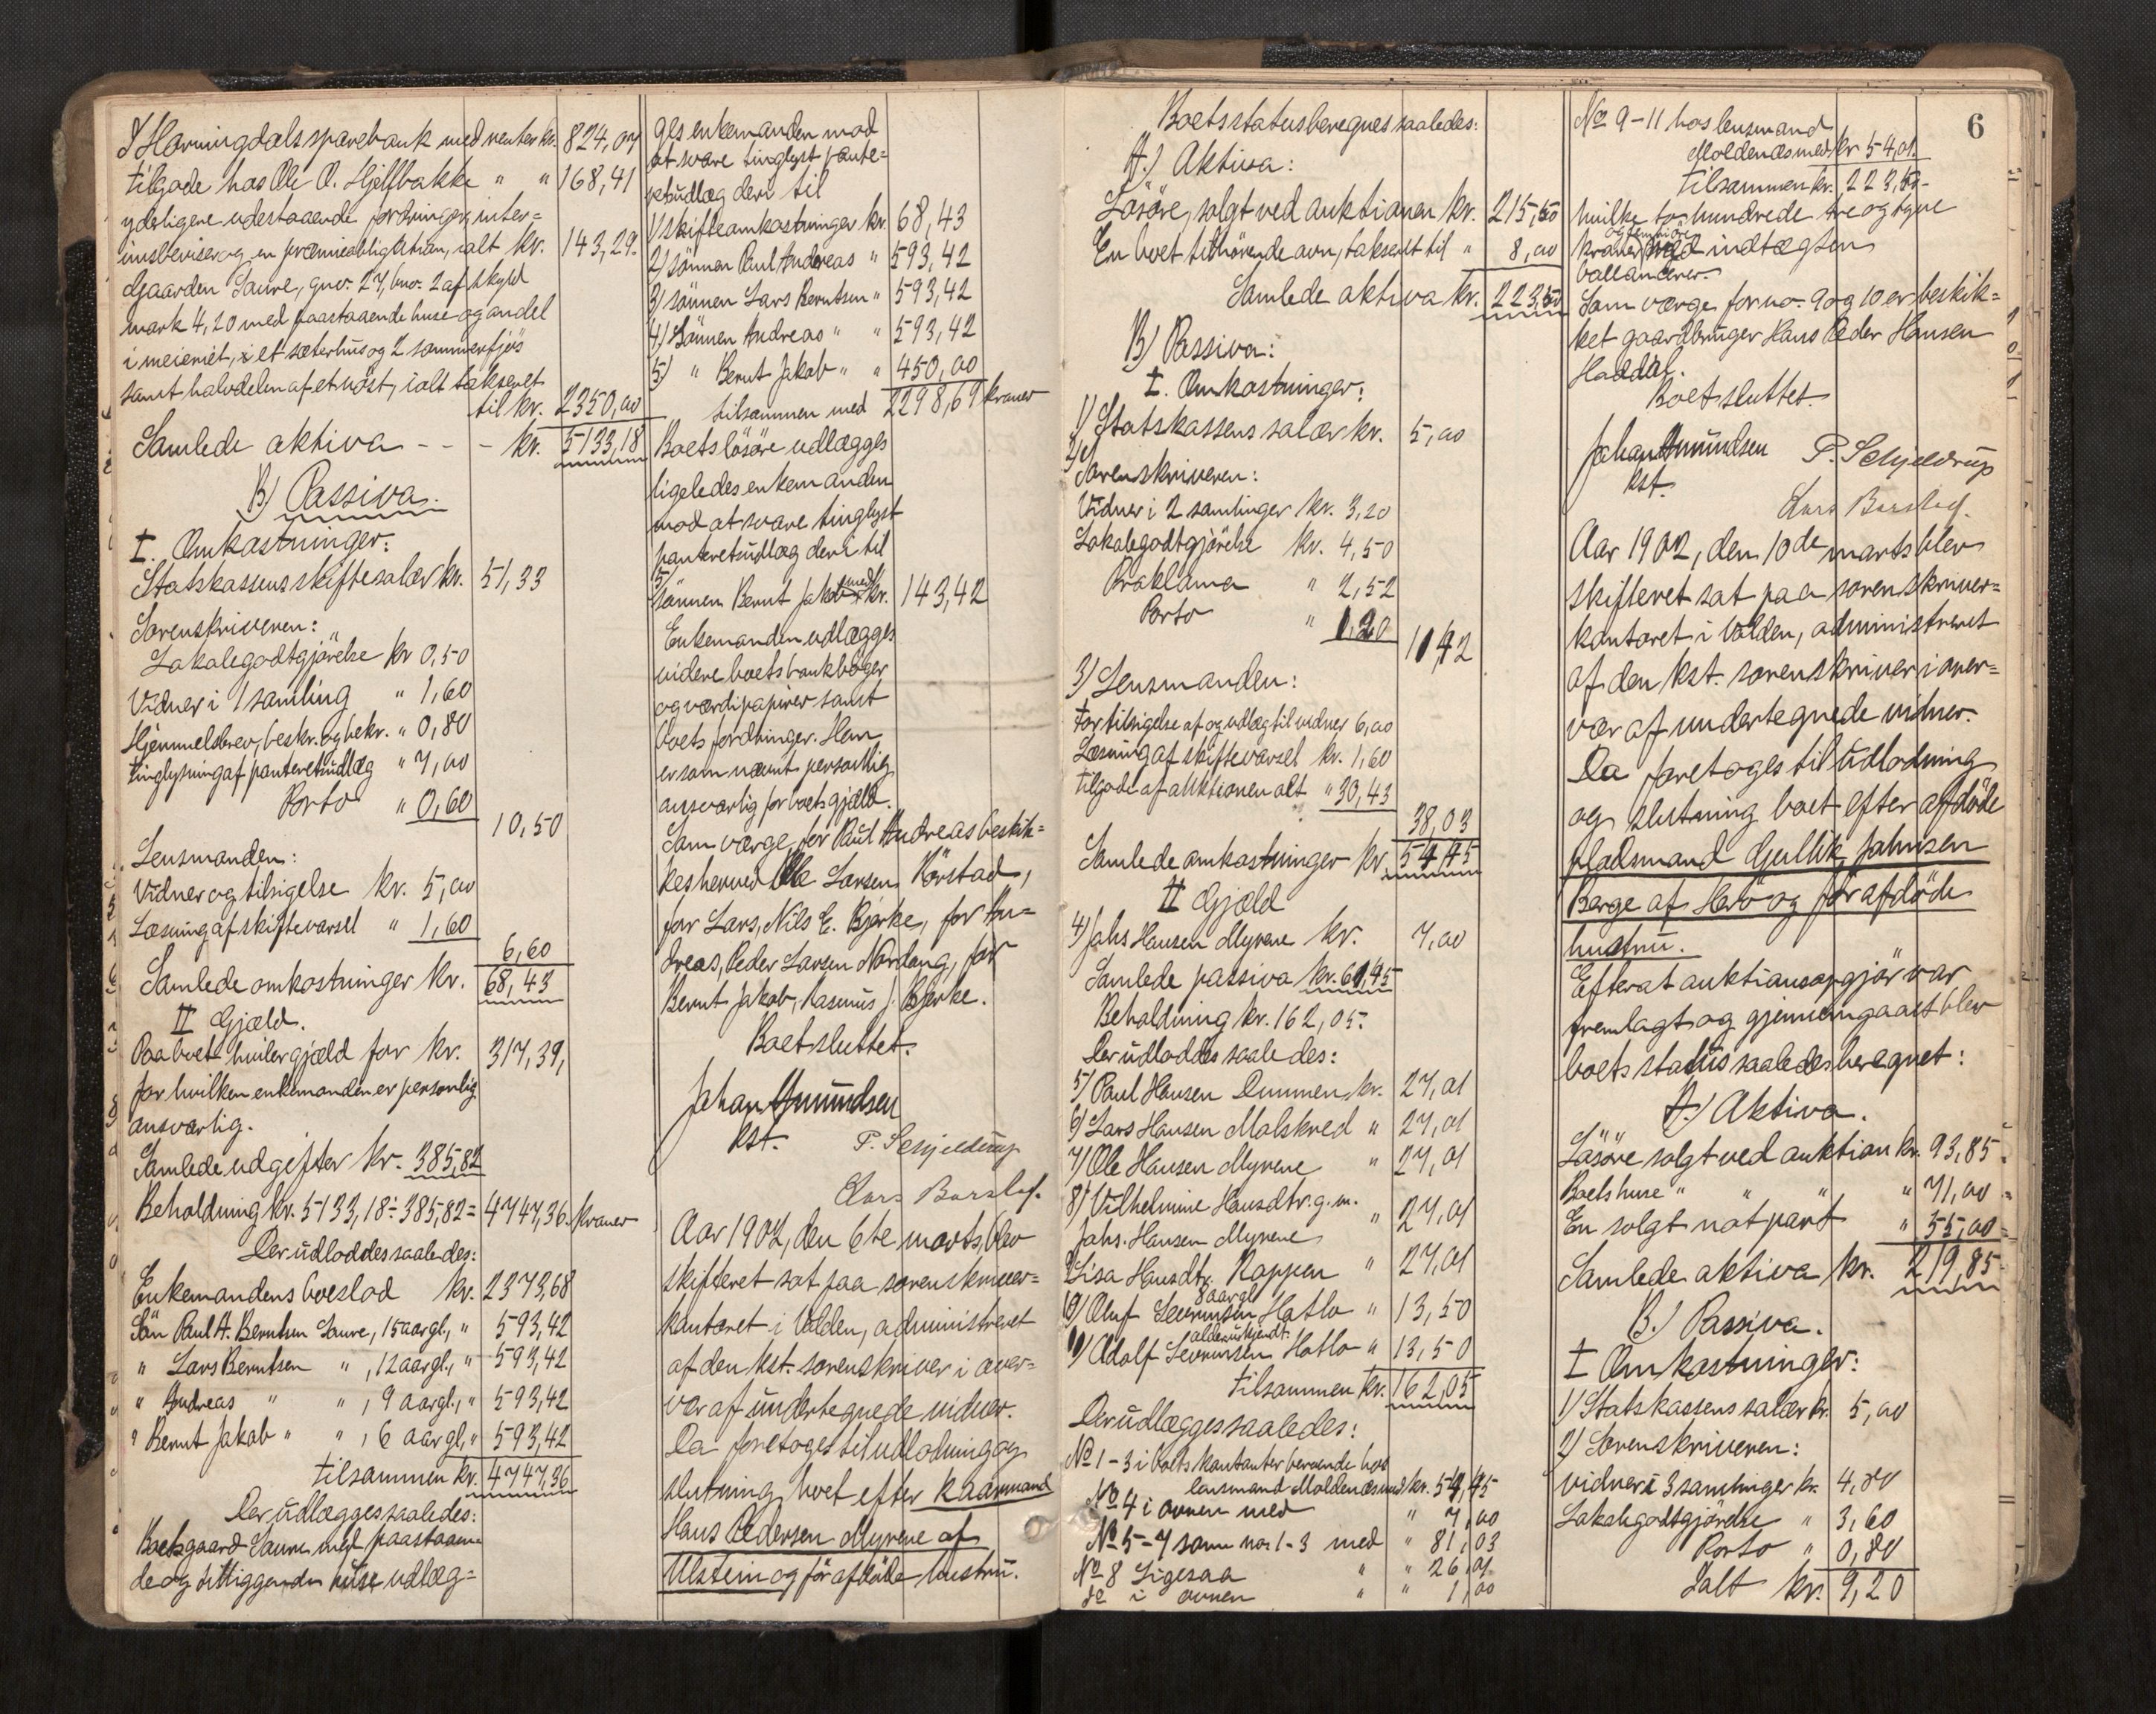 I Horningdals sparebank med renter kr. 824,07
tilgode hos Ole O. Hjelfbakke " " 168,41
yderligere udestaaende fordringer, inter=
imsbeviser og en præmieobligation, ialt kr. 143,29.
Gaarden Saure, gno. 27, bno. 2 af skyld
mark 4,20 med paastaaende huse og andel
i meieriet, i et sæterhus og 2 sommerfjøs
samt halvdelen af et nöst, ialt takseret
til kr. 2350,00
Samlede aktiva - - - kr. 5133,18
B) Passiva.
I. Omkostninger:
Statskassens skiftesalær kr. 51,33
Sorenskriveren:
Lokalegodtgjörelse kr 0,50
Vidner i 1 samling " 1,60
Hjemmelsbrev, beskr. og bekr. " 0,80
tinglysning af panteretsudlæg " 7,00
Porto " 0,60
10,50
Lensmanden:
Vidner og tilsigelse kr. 5,00
Læsning af skiftevarsel " 1,60
6,60
Samlede omkostninger kr. 68,43
II Gjæld.
Paa boet hviler gjæld for kr. 317,39,
for hvilken enkemanden er personlig
ansvarlig.
Samlede udgifter kr. 385,82
Beholdning kr. 5133,18 ÷ 385,82 = 4747,36 kroner
Der udloddes saaledes:
Enkemandens boeslod kr. 2373,68
Sön Paul A. Berntsen Saure, 15 aar gl., " 593,42
" Lars Berntsen " , 12 aar gl., " 593,42
" Andreas " " , 9 aar gl., " 593,42
" Bernt Jakob " " , 6 aar gl., " 593,42
tilsammen kr. 4747,36
Der udlægges saaledes:
Boets gaard Saure med paastaaen
de og tilliggende huse udlæg=
ges enkemanden mod
at svare tinglyst pante=
retsudlæg deri til
1) skifteomkostninger kr. 68,43
2) sönnen Paul Andreas " 593,42
3) sönnen Lars Berntsen " 593,42
4) Sönnen Andreas " " 593,42
5) " Bernt Jakob " " 450,00
tilsammen med 2298,69 kroner
Boets lösöre udlægges
ligeledes enkemanden
mod at svare tinglyst
panteretsudlæg deri til
5)
sönnen Bernt Jakob med kr. 143,42
Enkemanden udlægges
videre boets bankböger
og værdipapirer samt
boets fordringer. Han
er som nævnt personlig
ansvarlig for boets gjæld.
Som værge for Paul Andreas beskik=
kes herved Ole Larsen Körstad,
for Lars, Nils E. Bjerke, for An=
dreas, Peder Larsen Nordang, for
Bernt Jakob, Rasmus J. Bjerke.
Boet sluttet.
Johan Amundsen
kst.
P. Schjeldrup
Lars Barstad.
Aar 1902, den 6te marts, blev
skifteret sat paa sorenskriver=
kontoret i Volden, administreret
af den kst. sorenskriver i over=
vær af undertegnede vidner.
Da foretoges til udlodning og
slutning boet efter kaarmand
Hans Pedersen Myrene af
Ulstein og för afdöde hustru.
6
Boets status beregnes saaledes:
A.) Aktiva:
Lösöre, solgt ved auktionen kr. 215,50
En boet tilhörende ovn, takseret til " 8,00
Samlede aktiva kr. 223,50
B) Passiva:
I. Omkostninger:
1) Statskassens salær kr. 5,00
2)
Sorenskriveren:
Vidner i 2 samlinger kr. 3,20
Lokalegodtgjörelse kr. 4,50
Proklama " 2,52
Porto " 1,20
11,42
3) Lensmanden:
For tilsigelse af og udlæg til vidner 6,00
Læsning af skiftevarsel kr. 1,60
tilgode af auktionen alt " 30,43
38,03
Samlede omkostninger kr. 54,45
II Gjæld
4) Johs Hansen Myrene kr. 7,00
Samlede passiva kr. 61,45
Beholdning kr. 162,05.
Der udloddes saaledes:
5) Paul Hansen Dimmen kr. 27,01
6) Lars Hansen Molskred " 27,01
7) Ole Hansen Myrene " 27,01
8) Vilhelmine Hansdtr. g. m.
Johs. Hansen Myrene " 27,01
9) Lisa Hansdtr. Roppen " 27,01
8 aar gl.
10) Oluf Severinsen Hatlo " 13,50
alder ukjendt.
11) Adolf Severinsen Hatlo " 13,50
tilsammen kr. 162,05
Der udlægges saaledes:
No 1-3 i boets kontanter beroende hos
lensmand Moldenæs med kr. 54,45
No 4 i ovnen med " 7,00
No 5-7 som no. 1-3 med " 81,03
No 8 Ligesaa " " 26,01
do i ovnen " " 1,00
No 9-11 hos lensmand
Moldenæs med kr 54,01.
tilsammen kr. 223,50-
hvilke to hundrede tre og tyve
og femti öre
kroner med indtægten
ballancerer.
Som værge for no. 9 og 10 er beskik=
ket gaardbruger Hans Peder Hansen
Haddal.
Boet sluttet.
Johan Amundsen
kst.
P. Schjeldrup
Lars Barstad.
Aar 1902, den 10de marts blev
skifteret sat paa sorenskriver=
kontoret i Volden, administreret
af den kst. sorenskriver i over=
vær af undertegnede vidner.
Da foretoges til udlodning
og slutning boet efter afdöde
pladsmand Gullik Johnsen
Berge af Herö og för afdöde
hustru.
Efterat auktionsopgjör var
fremlagt og gjennemgaaet blev
boets status saaledes beregnet:
A.) Aktiva.
Lösöre solgt ved auktion kr. 93,85
Boets huse " " " " 71,00
En solgt notpart " 55,00
Samlede aktiva kr. 219,85
B.) Passiva.
I Omkostninger:
1) Statskassens salær kr. 5,00
2) Sorenskriveren:
vidner i 3 samlinger kr. 4,80
Lokalegodtgjörelse " 3,60
Porto " 0,80
Ialt kr. 9,20